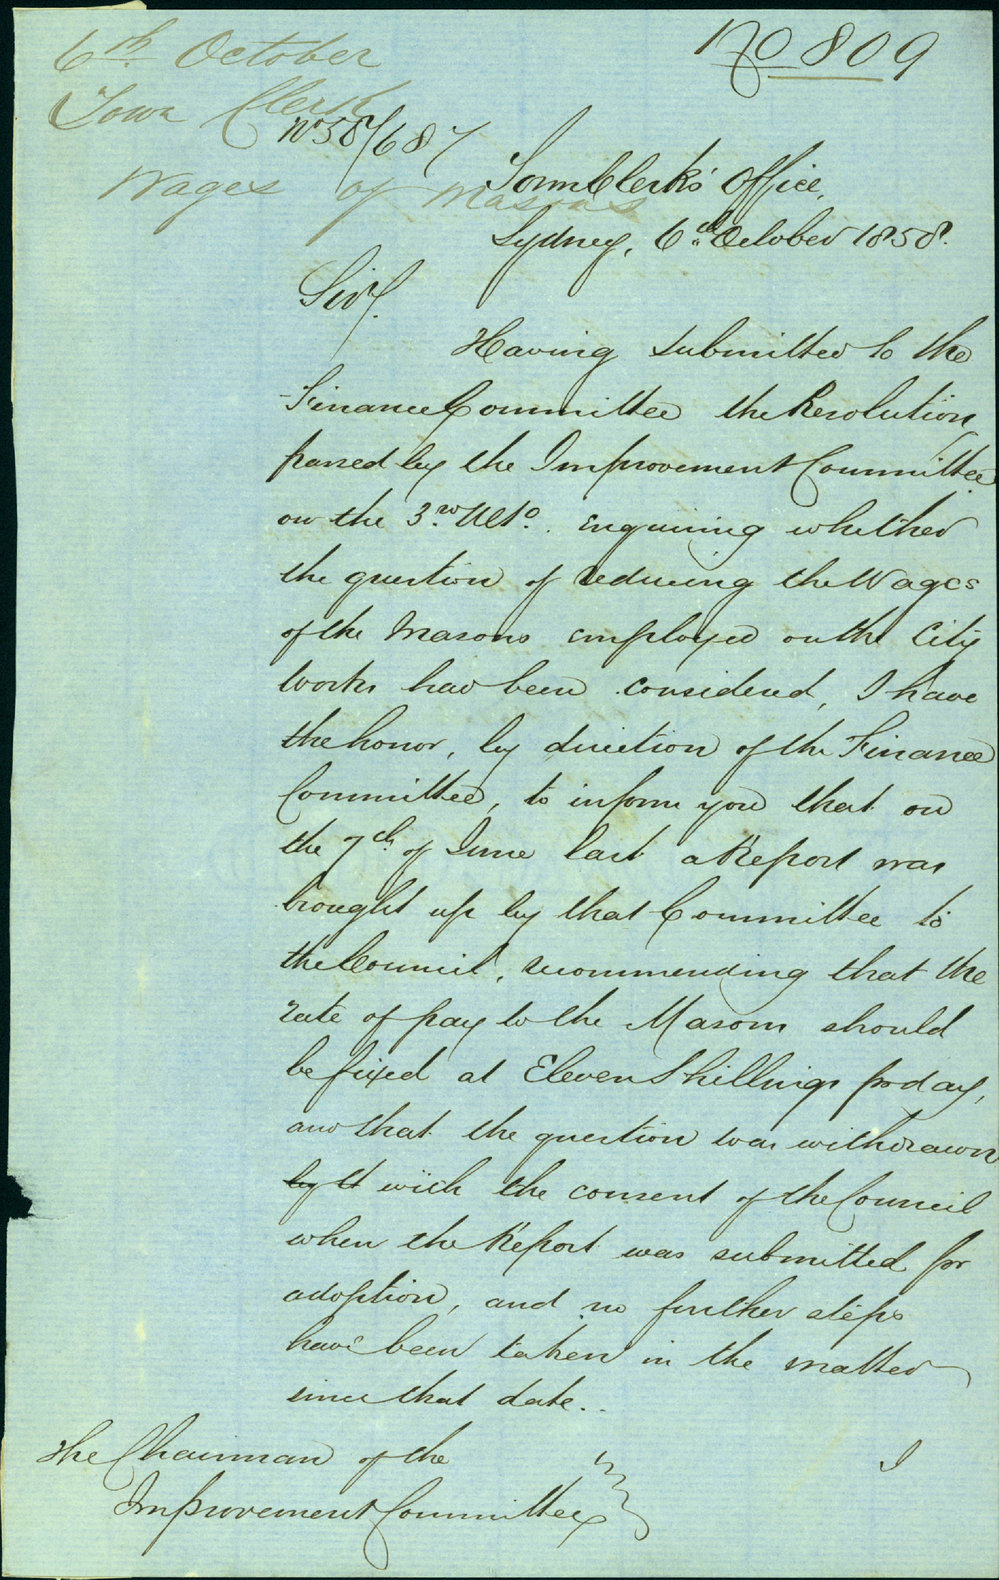 6th October
Town Clerk
Wages of Masons
No 809
No 58/687
Town Clerk's Office,
Sydney, 6th October 1858.
Sir,
Having submitted to the
Finance Committee the Resolution
passed by the Improvement Committee
on the 3rd Ulto. enquiring whether
the question of reducing the Wages
of the Masons employed on the City
Works had been considered, I have
the honor, by direction of the Finance
Committee, to inform you that on
the 7th of June last a Report was
brought up by that Committee to
the Council, recommending that the
rate of pay to the Masons should
be fixed at Eleven Shillings pr day,
and that the question was withdrawn
by it with the consent of the Council
when the Report was submitted for
adoption, and no further steps
have been taken in the matter
since that date..
The Chairman of the
Improvement Committee
I